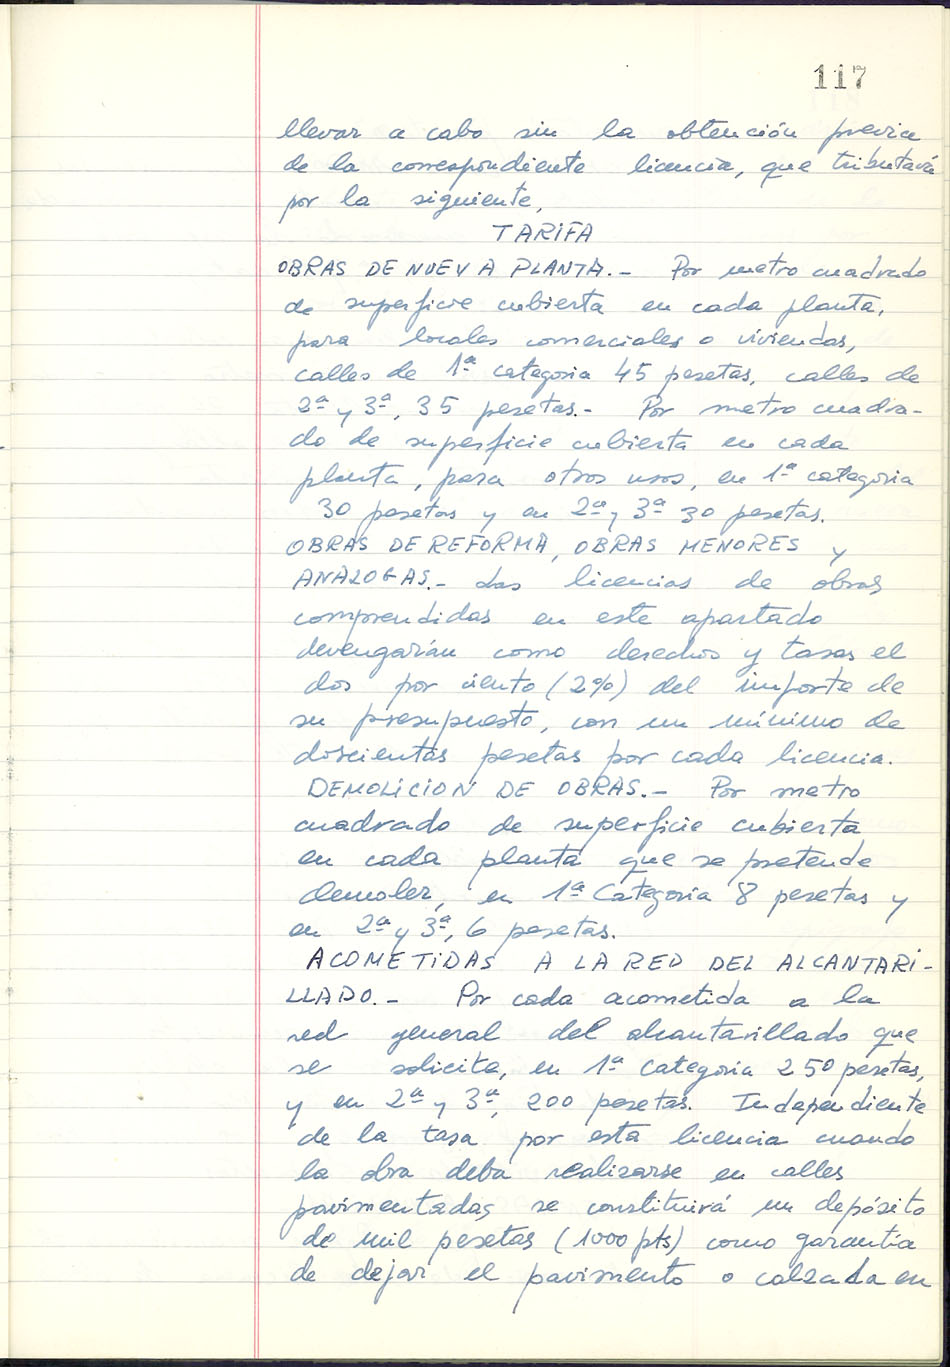 117
llevar a cabo sin la obtención previa
de la correspondiente licencia, que tributará
por la siguiente,
TARIFA
OBRAS DE NUEVA PLANTA.- Por metro cuadrado
de superficie cubierta en cada planta,
para locales comerciales o viviendas,
calles de 1ª categoria 45 pesetas, calles de
2ª y 3ª, 35 pesetas.- Por metro cuadra-
do de superficie cubierta en cada
planta, para otros usos, en 1ª categoria
30 pesetas y en 2ª y 3ª 30 pesetas.
OBRAS DE REFORMA, OBRAS MENORES y
ANALOGAS.- Las licencias de obras
comprendidas en este apartado
devengarán como derechos y tasas el
dos por ciento (2%) del importe de
su presupuesto, con un mínimo de
doscientas pesetas por cada licencia.
DEMOLICION DE OBRAS.- Por metro
cuadrado de superficie cubierta
en cada planta que se pretende
demoler, en 1ª Categoria 8 pesetas y
en 2ª y 3ª, 6 pesetas.
ACOMETIDAS A LA RED DEL ALCANTARI-
LLADO.- Por cada acometida a la
red general del alcantarillado que
se solicite, en 1ª categoria 250 pesetas,
y en 2ª y 3ª, 200 pesetas. Independiente
de la tasa por esta licencia cuando
la obra deba realizarse en calles
pavimentadas se constituirá un depósito
de mil pesetas (1000 pts) como garantía
de dejar el pavimento o calzada en